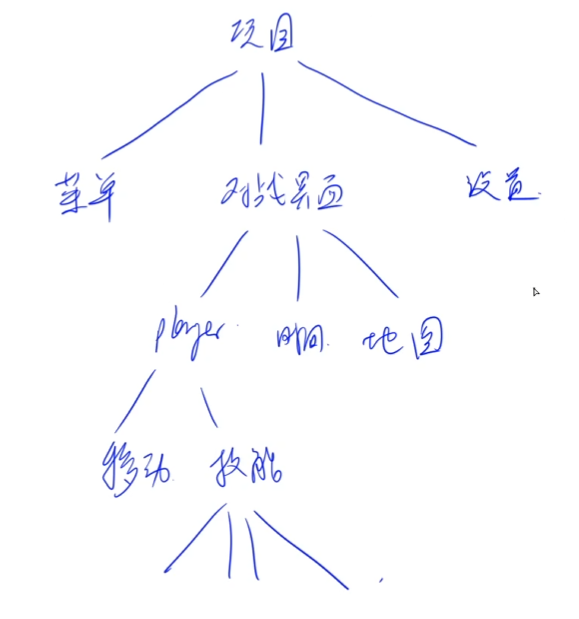 项目
菜单 对战界面 设置
player 时间 地图
移动 技能